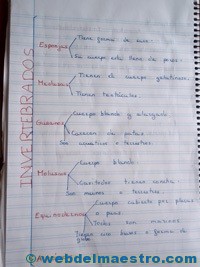 INVERTEBRADOS
Esponjas
Tiene forma de saco.
Su cuerpo está lleno de poros.
Medusas
Tienen el cuerpo gelatinoso.
Tienen tentáculos.
Gusanos
Cuerpo blando y alargado
Carecen de patas
Son acuáticos o terrestres
Moluscos
Cuerpo blando
terrestres.
Equinodermos
Cuerpo cubierto por placas
o púas
Todos son marinos
forma de
© webdelmaestro.com